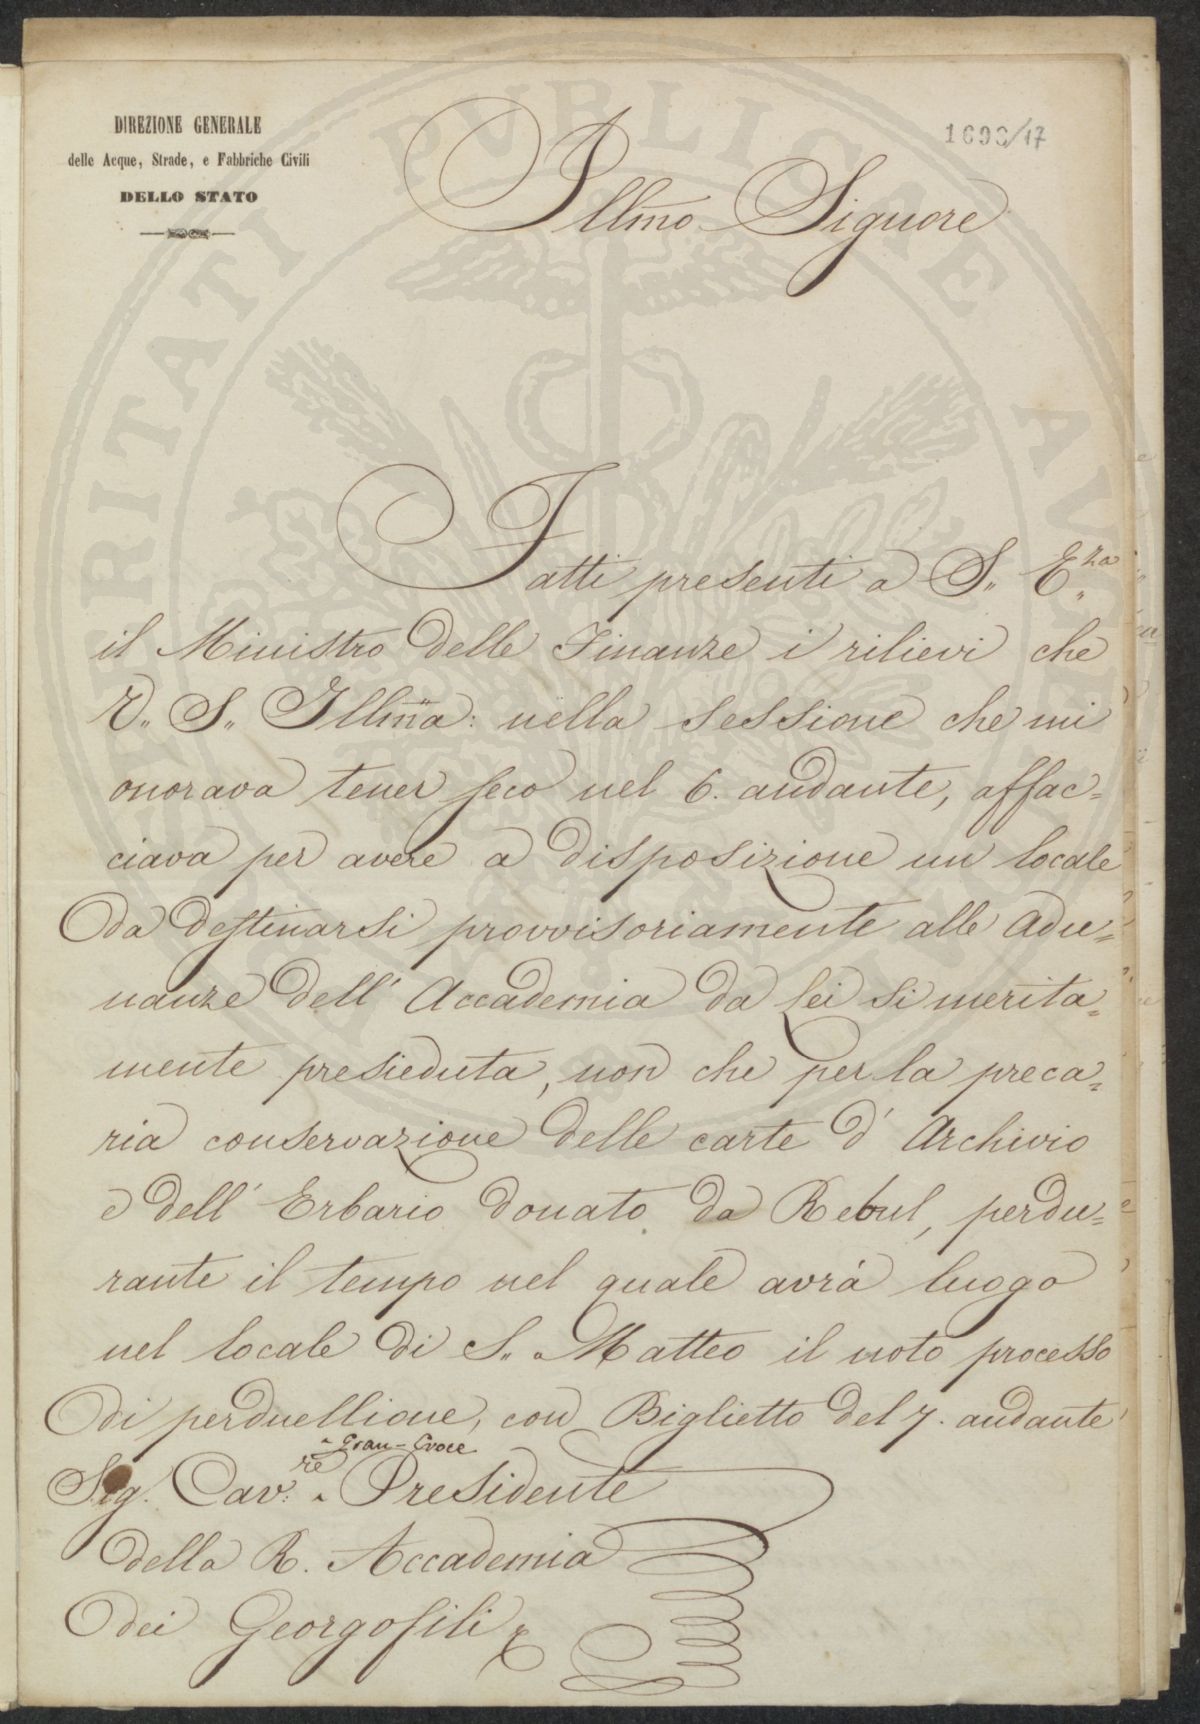 DIREZIONE GENERALE
delle Acque, Strade, e Fabbriche Civili
DELLO STATO
1690/17
Illm̃o Signore
Fatti presenti a S. E.za
il Ministro delle Finanze i rilievi che
V. S. Illm̃a: nella sessione che mi
onorava tener seco nel 6. andante, affac=
ciava per avere a disposizione un locale
da destinarsi provvisoriamente alle Adu=
nanze dell' Accademia da lei sì merita=
mente presieduta, non che per la preca=
ria conservazione delle carte d' Archivio
e dell' Erbario donato da Rebul, perdu=
rante il tempo nel quale avrà luogo
nel locale di S. Matteo il noto processo
di perduellione, con Biglietto del 7. andante
Gran-Croce
Sig. Cav.re Presidente
della R. Accademia
dei Georgofili